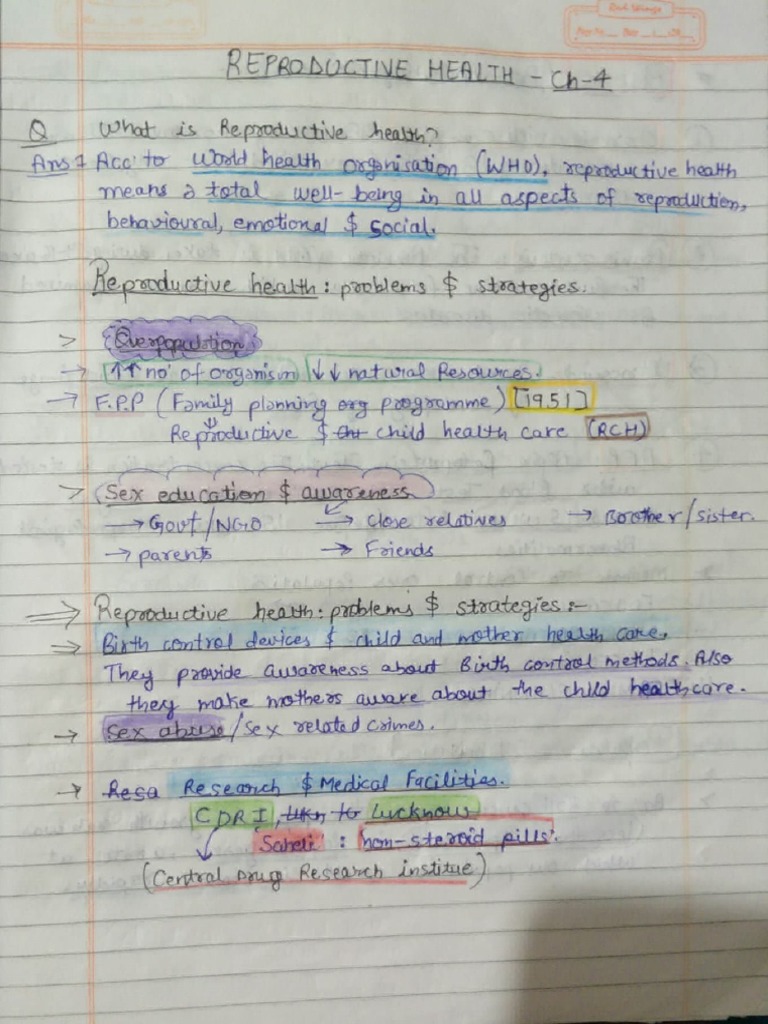 REPRODUCTIVE HEALTH - Ch-4
Q What is Reproductive health?
Ans 1 Acc. to World health organisation (WHO), reproductive health
means a total well-being in all aspects of reproduction,
behavioural, emotional & social.
Reproductive health: problems & strategies.
> Overpopulation
→ ↑↑ no. of organism ↓↓ natural Resources.
→ F.P.P (Family planning org programme) [1951]
Reproductive & child health care (RCH)
> Sex education & awareness
→ Govt/NGO → close relatives → Brother/sister.
→ parents → Friends
⇒ Reproductive health: problems & strategies:-
⇒ Birth control devices & child and mother health care.
They provide awareness about Birth control methods. Also
they make mothers aware about the child healthcare.
→ Sex abuse/Sex related crimes.
→ Resa Research & Medical Facilities.
CDRI, to Lucknow
Saheli : non-steroid pills.
(Central Drug Research institue)